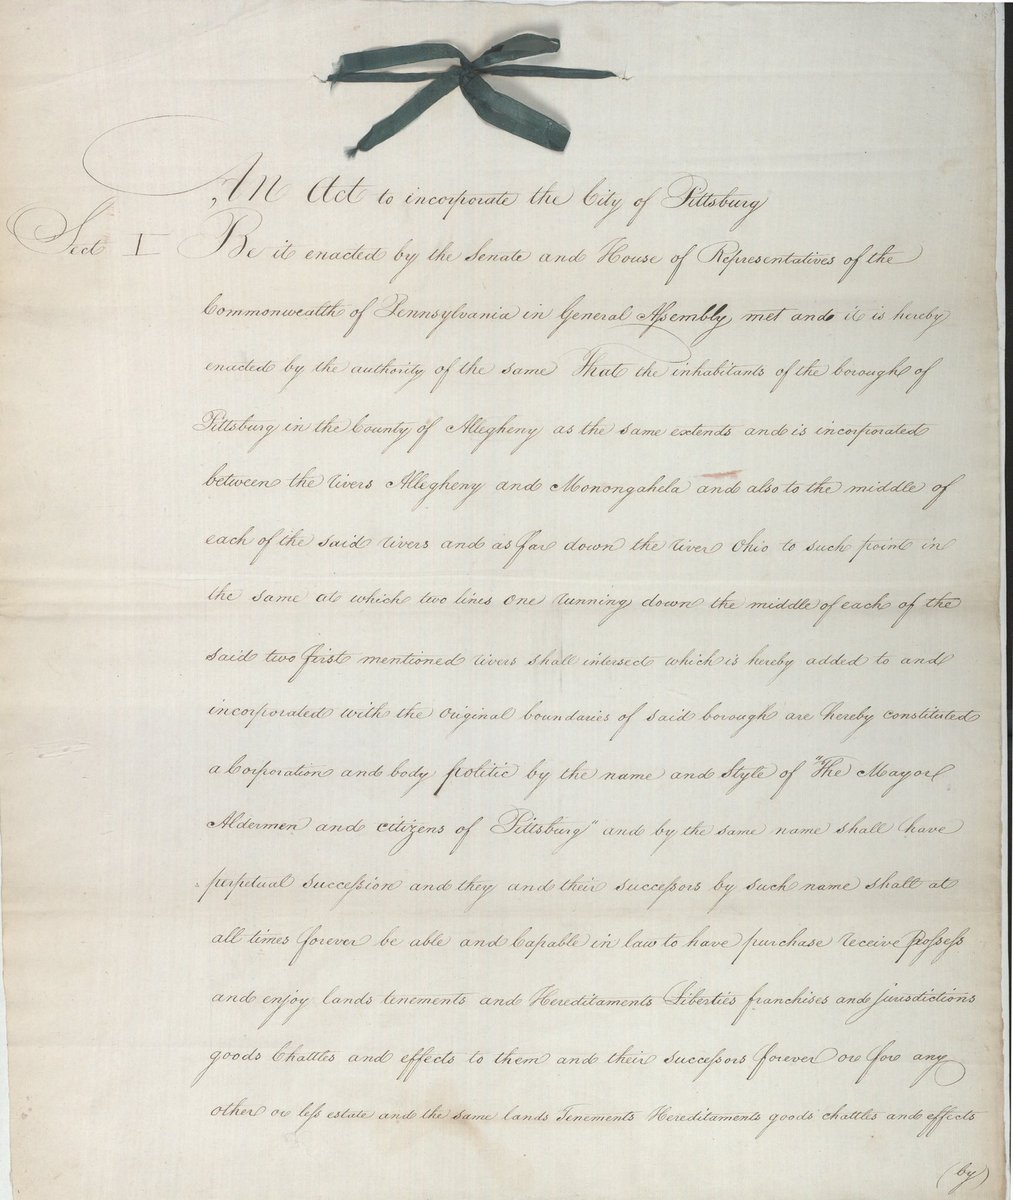 An Act to incorporate the City of Pittsburg
Sect I Be it enacted by the Senate and House of Representatives of the
Commonwealth of Pennsylvania in General Assembly met and it is hereby
enacted by the authority of the same That the inhabitants of the borough of
Pittsburg in the County of Allegheny as the same extends and is incorporated
between the rivers Allegheny and Monongahela and also to the middle of
each of the said rivers and as far down the river Ohio to such point in
the same at which two lines one running down the middle of each of the
said two first mentioned rivers shall intersect which is hereby added to and
incorporated with the original boundaries of said borough are hereby constituted
a Corporation and body politic by the name and Style of "The Mayor
Aldermen and citizens of Pittsburg" and by the same name shall have
perpetual succession and they and their successors by such name shall at
all times forever be able and Capable in law to have purchase receive possess
and enjoy lands tenements and Hereditaments Liberties franchises and jurisdictions
goods Chattles and effects to them and their successors forever or for any
other or less estate and the same lands Tenements Hereditaments goods chattles and effects
(by)